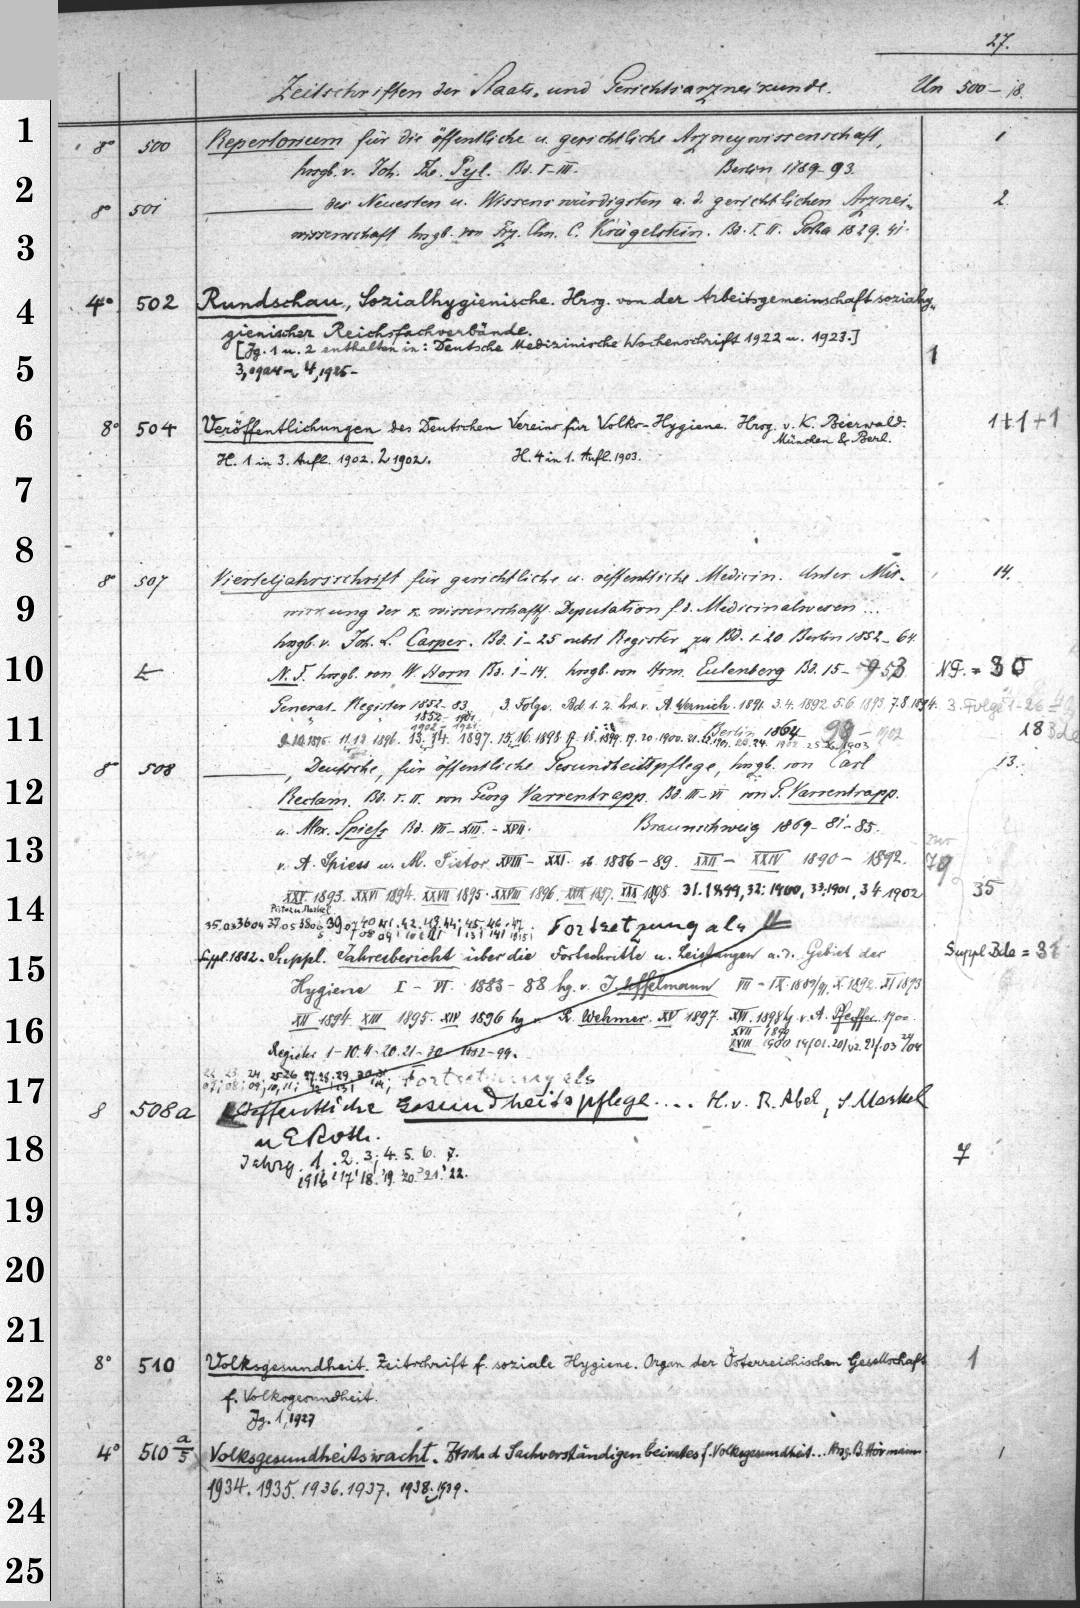 27.
Zeitschriften der Staats- und Gerichtsarzneikunde. Un 500 – 18.
8° 500 Repertorium für die öffentliche u. gerichtliche Arzneywissenschaft, 1
hrsgb. v. Joh. Th. Pyl. Bd. I–III. Berlin 1789–93.
8° 501 ——— des Neuesten u. Wissenswürdigsten a. d. gerichtlichen Arznei- 2
wissenschaft hrsgb. von Frz. Chn. C. Krügelstein. Bd. I. II. Gotha 1829. 41.
4° 502 Rundschau, Sozialhygienische. Hrsg. von der Arbeitsgemeinschaft sozialhy-
gienischer Reichsfachverbände.
[Jg. 1 u. 2 enthalten in: Deutsche Medizinische Wochenschrift 1922 u. 1923.] 1
4, 1925–
8° 504 Veröffentlichungen des Deutschen Vereins für Volks-Hygiene. Hrsg. v. K. Beerwald. 1+1+1
München & Berl.
H. 1 in 3. Aufl. 1902. 2 1902. H. 4 in 1. Aufl. 1903.
8° 507 Vierteljahrsschrift für gerichtliche u. oeffentliche Medicin. Unter Mit- 14.
wirkung der k. wissenschaftl. Deputation f. d. Medicinalwesen ...
hrsgb. v. Joh. L. Casper. Bd. 1–25 nebst Register zu Bd. 1–20 Berlin 1852–64
N. F. hrsgb. von W. Horn Bd. 1–14. hrsgb. von Herm. Eulenberg Bd. 15–53 N.F. = 30
General-Register 1852–83. 3. Folge. Bd. 1. 2. hrs. v. A. Wernich. 1891. 3.4. 1892 5.6 1893. 7.8 1894. 3. Folge 1–26
1852–1901
9.10. 1895. 11.12 1896. 13.14. 1897. 15.16. 1898 17. 18. 1899. 19. 20. 1900. Berlin 1864– 1902 18
8° 508 ———, Deutsche, für öffentliche Gesundheitspflege, hrsgb. von Carl 13.
Reclam. Bd. I. II. von Georg Varrentrapp. Bd. III–VI von G. Varrentrapp.
u. Alex. Spiess Bd. VII–XIII.–XVII. Braunschweig 1869–81–85.
v. A. Spiess u. M. Pistor XVIII–XXI. 1886–89. XXII–XXIV 1890–1892.
XXV 1893. XXVI 1894. XXVII 1895. XXVIII 1896. XXIX 1897. XXX 1898. 31. 1899, 32: 1900, 33. 1901, 34 1902 35
Pistor u. Merkel
35.03 36 04 37.05 38 06 39 07 40 41. 42. 43. 44. 45. 46. 47. Fortsetzung als
Suppl. 1882. Suppl. Jahresbericht über die Fortschritte u. Leistungen a. d. Gebiet der Suppl Bde = 31
Hygiene I–VI. 1883–88 hg. v. J. Uffelmann VII–IX 1889/91, X 1892. XI 1893
XII 1894 XIII 1895. XIV 1896 hg v. R. Wehmer. XV 1897. XVI. 1898 v. A. Pfeiffer. 1900.
XVII 1899
XVIII 1900 19/01. 20/02. 21/03 22/04
Register 1–10. 11–20. 21–30 1882–99.
22 23. 24. 25 26 27. 28. 29. 30 31 Fortsetzung als
8 508a Öffentliche Gesundheitspflege .... H. v. R. Abel, S Merkel
u E Roth.
Jahrg. 1. 2. 3, 4. 5. 6. 7. 7
1916 '17 '18. '19. '20. '21. '22.
8° 510 Volksgesundheit. Zeitschrift f. soziale Hygiene. Organ der Österreichischen Gesellschaft 1
f. Volksgesundheit.
Jg. 1, 1927
4° 510 a/5 Volksgesundheitswacht. Ztschr. d. Sachverständigenbeirates f. Volksgesundheit... Hrsg. B. Hörmann 1
1934. 1935. 1936. 1937. 1938. 1939.
1
2
3
4
5
6
7
8
9
10
11
12
13
14
15
16
17
18
19
20
21
22
23
24
25